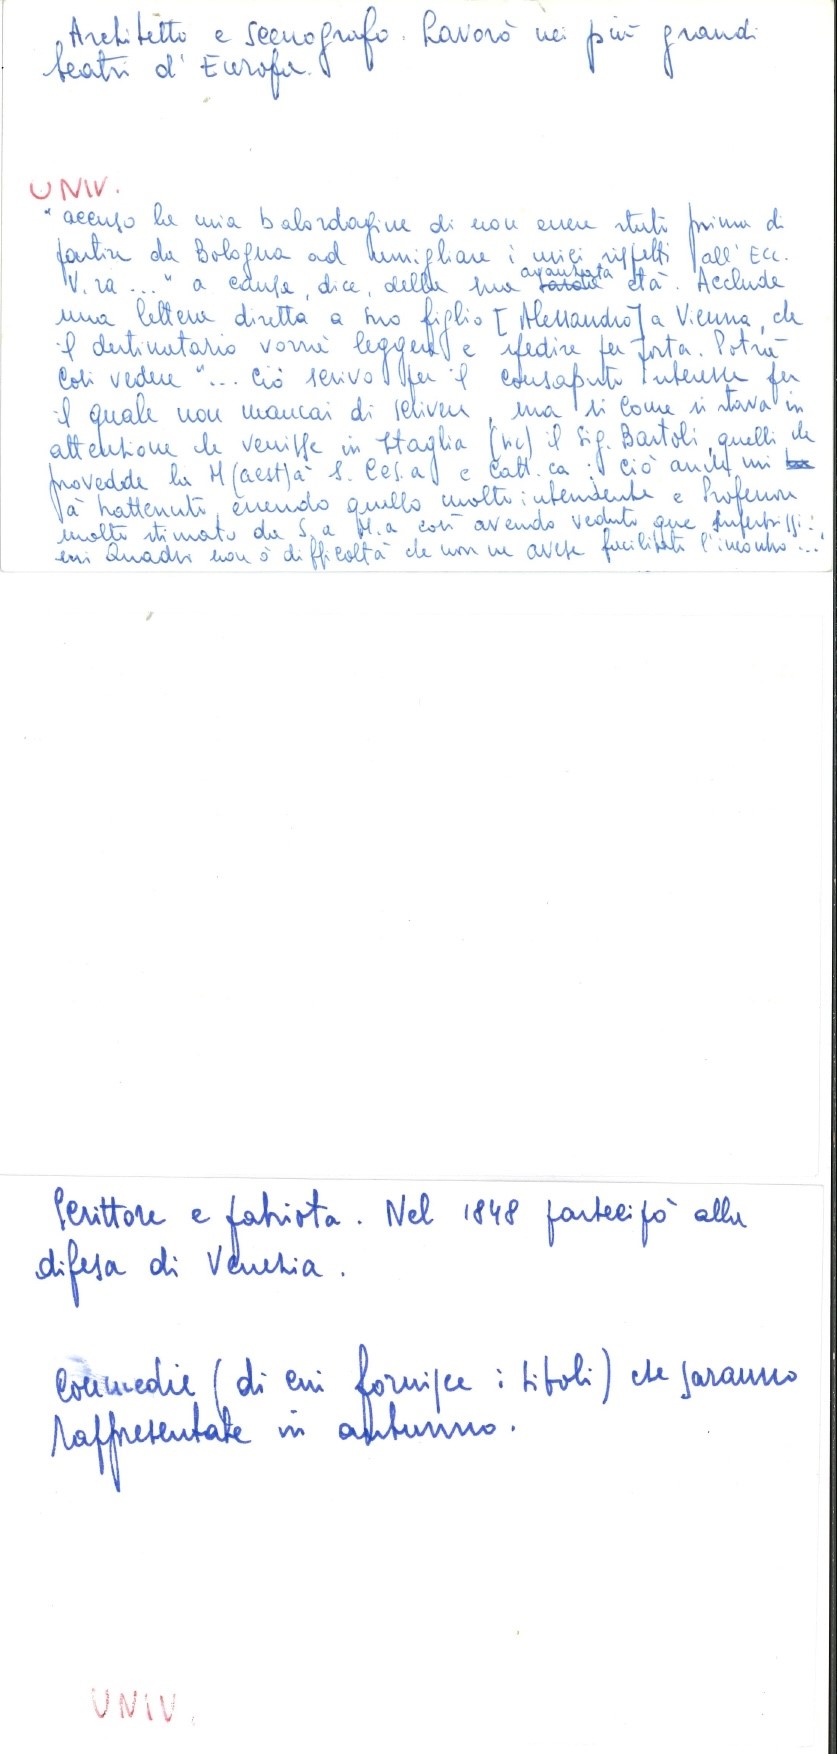 Architetto e scenografo. Lavorò nei più grandi
teatri d'Europa.
UNIV.
"accuso la mia balordagine di non essere stato prima di
partire da Bologna ad umigliare i miei rispetti all'Ecc.
V.ra ..." a causa, dice, della sua avanzata età. Acclude
una lettera diretta a suo figlio [Alessandro] a Vienna, che
il destinatario vorrà leggere e spedire per posta. Potrà
così vedere "... Ciò scrivo per il consaputo interesse per
il quale non mancai di scrivere, ma si come si stava in
attenzione che venisse in Itaglia (sic) il Sig. Bartoli, quelli che
provedde la M(aest)à S. Ces.a e Catt.ca; ciò anche mi
à trattenuto, essendo quello molto intendente e Professore
molto stimato da S.a M.a così avendo veduto que superbissi:
mi Quadri non ò difficoltà che non ne avese facilitato l'incontro..."
Scrittore e patriota. Nel 1848 partecipò alla
difesa di Venezia.
Commedie (di cui fornisce i titoli) che saranno
rappresentate in autunno.
UNIV.